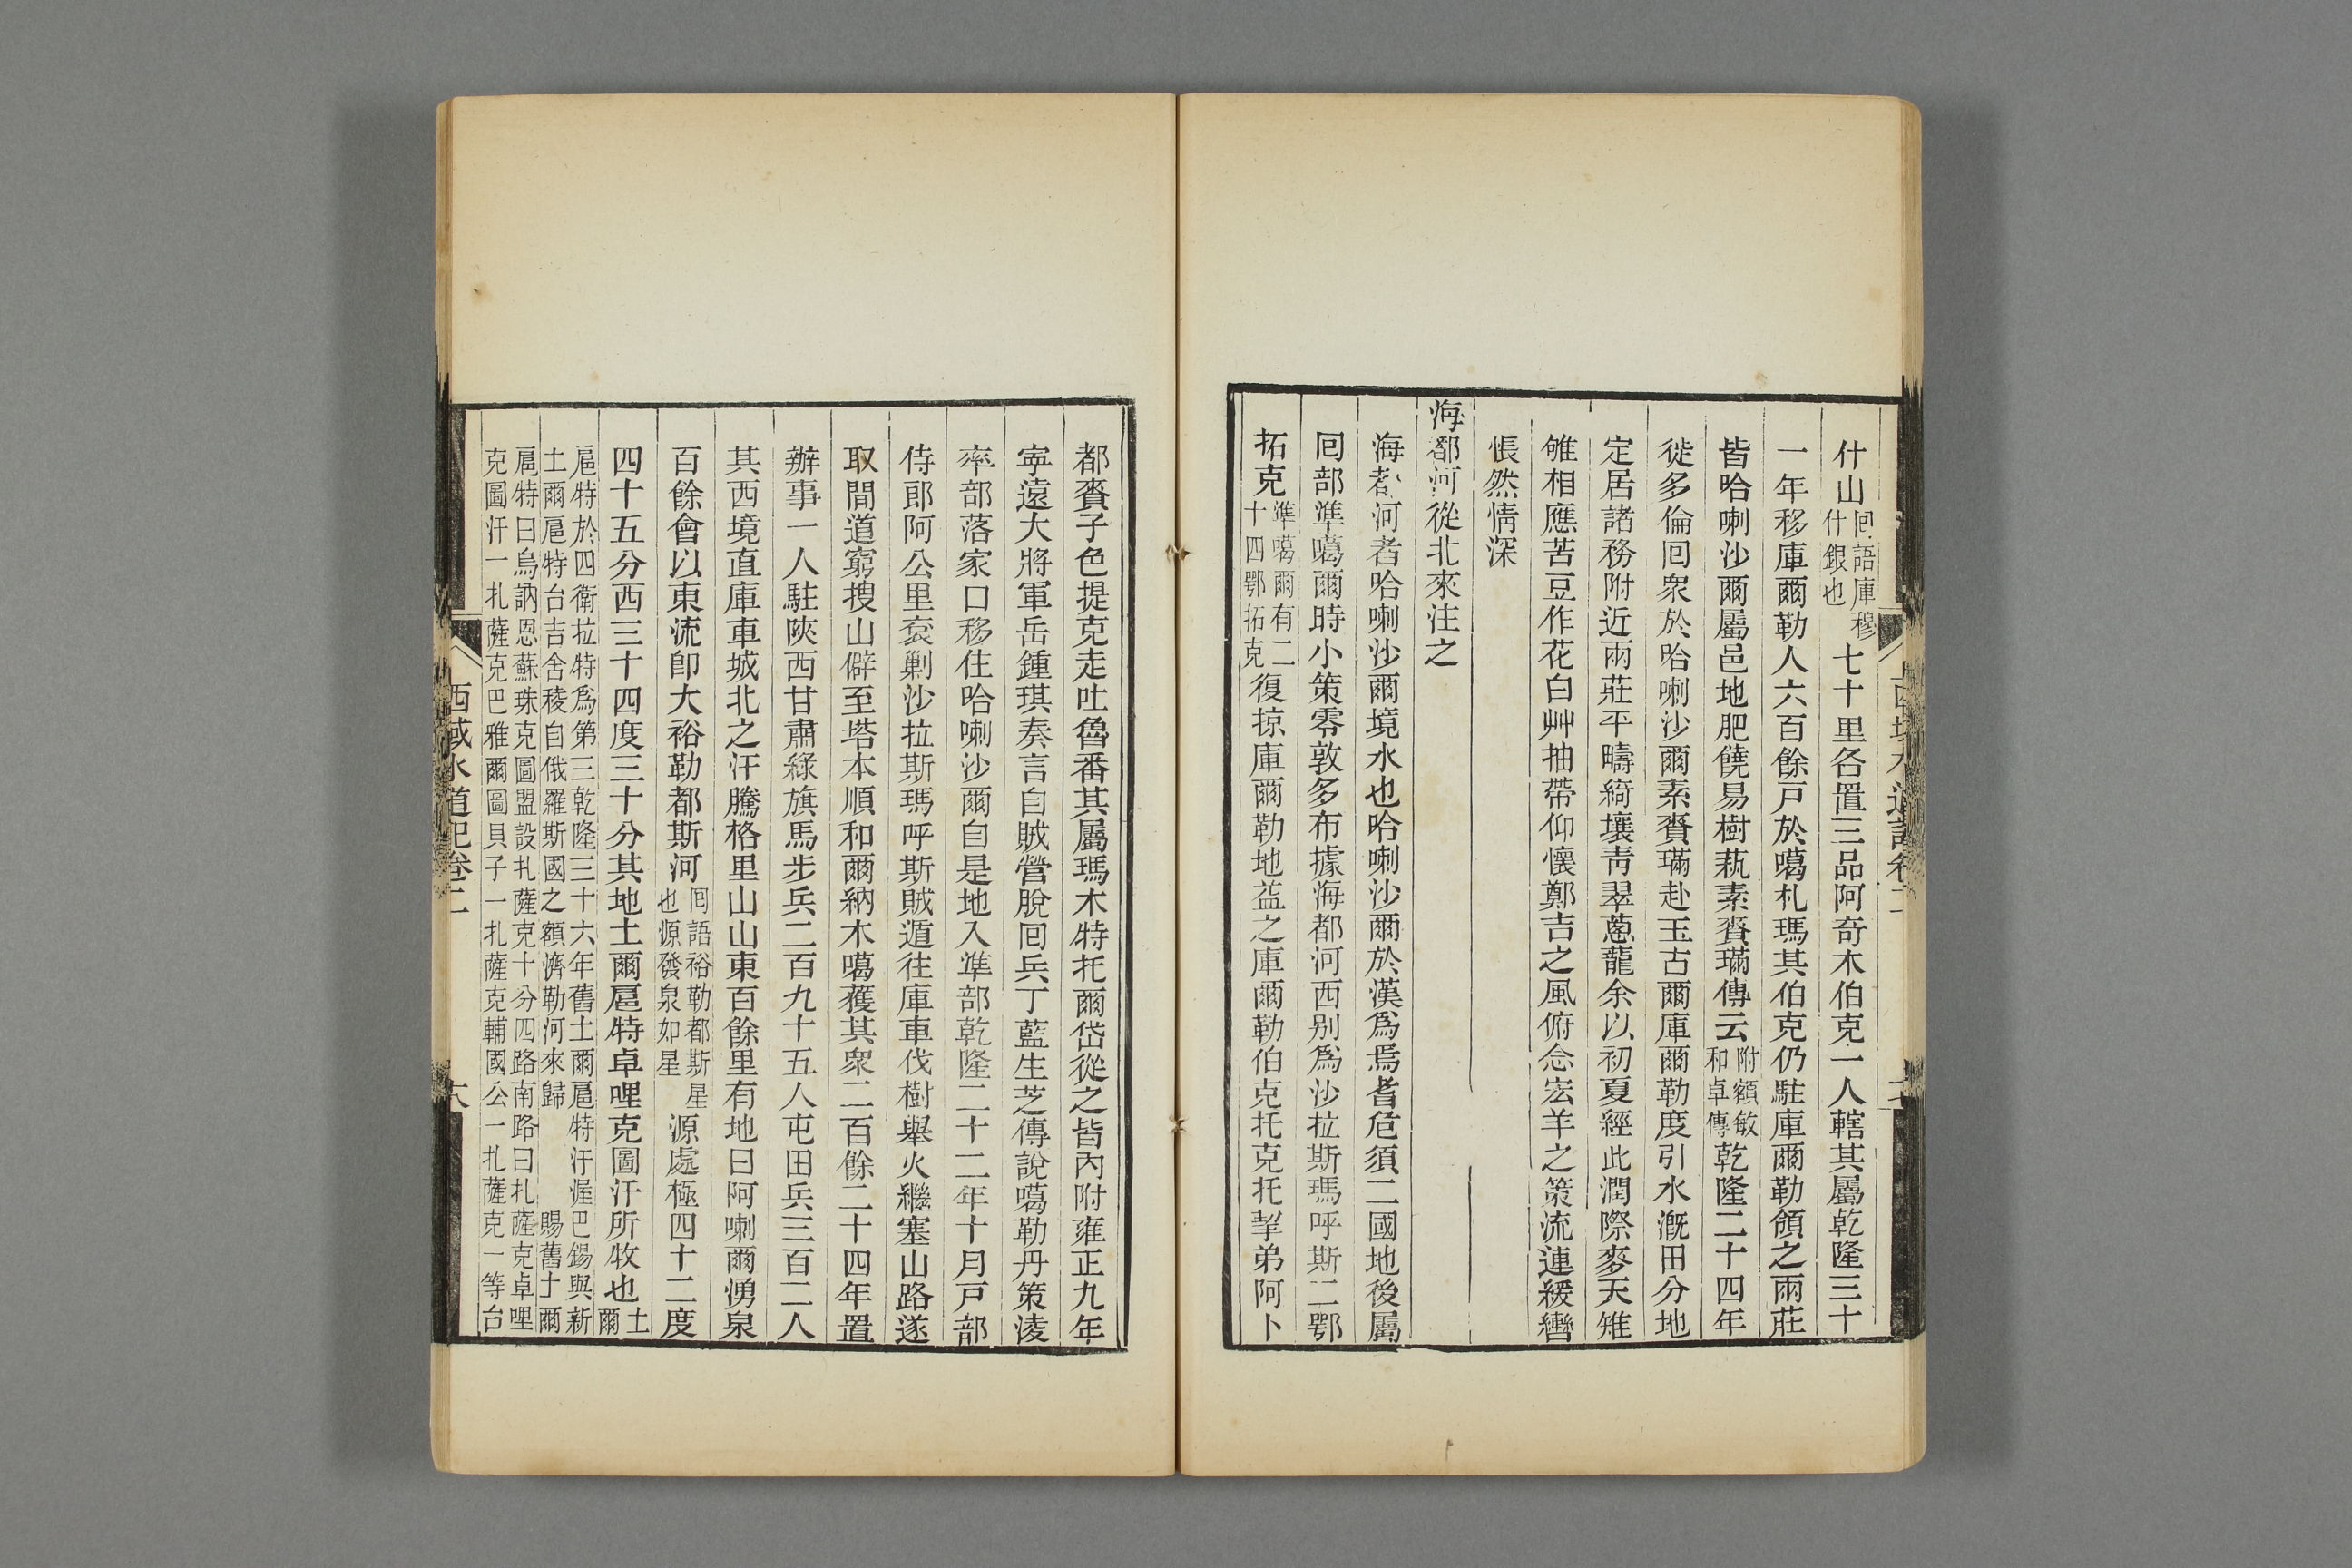 什山回語庫穆什銀也七十里各置三品阿奇木伯克一人轄其屬乾隆三十
一年移庫爾勒人六百餘戸於噶札瑪其伯克仍駐庫爾勒領之兩莊
皆哈喇沙爾屬邑地肥饒易樹蓺素賚璊傳云附額敏和卓傳乾隆二十四年
徙多倫回衆於哈喇沙爾素賚璊赴玉古爾庫爾勒度引水漑田分地
定居諸務附近兩莊平疇綺壤靑翠蔥蘢余以初夏經此潤際麥天雉
雊相應苦豆作花白艸抽帶仰懷鄭吉之風俯念宏羊之策流連緩轡
悵然情深
海都河從北來注之
海都河者哈喇沙爾境水也哈喇沙爾於漢爲焉耆危須二國地後屬
回部準噶爾時小策零敦多布據海都河西别爲沙拉斯瑪呼斯二鄂
拓克準噶爾有二十四鄂拓克復掠庫爾勒地益之庫爾勒伯克托克托挈弟阿卜
都賚子色提克走吐魯番其屬瑪木特托爾岱從之皆內附雍正九年
寜遠大將軍岳鍾琪奏言自賊營脫回兵丁藍生芝傳說噶勒丹策淩
率部落家口移住哈喇沙爾自是地入準部乾隆二十二年十月戸部
侍郎阿公里衮剿沙拉斯瑪呼斯賊遁往庫車伐樹舉火繼塞山路遂
取間道窮搜山僻至塔本順和爾納木噶蔆其衆二百餘二十四年置
辦事一人駐陝西甘肅綠旗馬步兵二百九十五人屯田兵三百二人
其西境直庫車城北之汗騰格里山山東百餘里有地曰阿喇爾湧泉
百餘會以東流卽大裕勒都斯河回語裕勒都斯星也源發泉如星源處極四十二度
四十五分西三十四度三十分其地土爾扈特卓哩克圖汗所牧也土爾
扈特於四衛拉特爲第三乾隆三十六年舊土爾扈特汗渥巴錫與新
土爾扈特台吉舍稜自俄羅斯國之額濟勒河來歸 賜舊土爾
扈特曰烏訥恩蘇珠克圖盟設札薩克十分四路南路曰札薩克卓哩
克圖汗一札薩克巴雅爾圖貝子一札薩克輔國公一札薩克一等台
西域水道記卷二